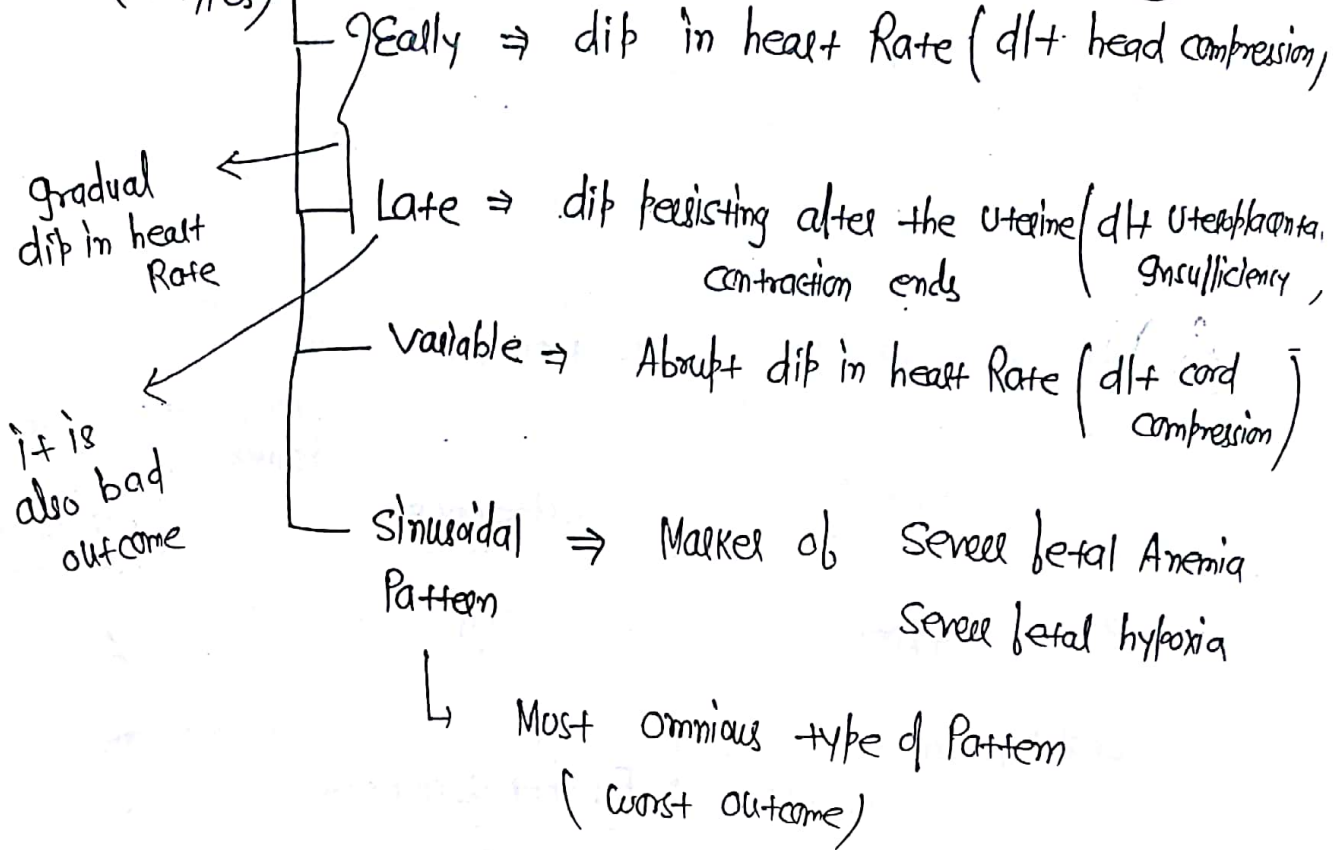 Early ⇒ dip in heart Rate (d/t head compression)
gradual
dip in heart
Rate
Late ⇒ dip persisting after the uterine (d/t Uteroplacenta.
contraction ends Insufficiency,
Variable ⇒ Abrupt dip in heart Rate (d/t cord
compression)
it is
also bad
outcome
Sinusoidal ⇒ Marker of Severe fetal Anemia
Pattern
Severe fetal hypoxia
↳ Most omnious type of Pattern
(worst outcome)